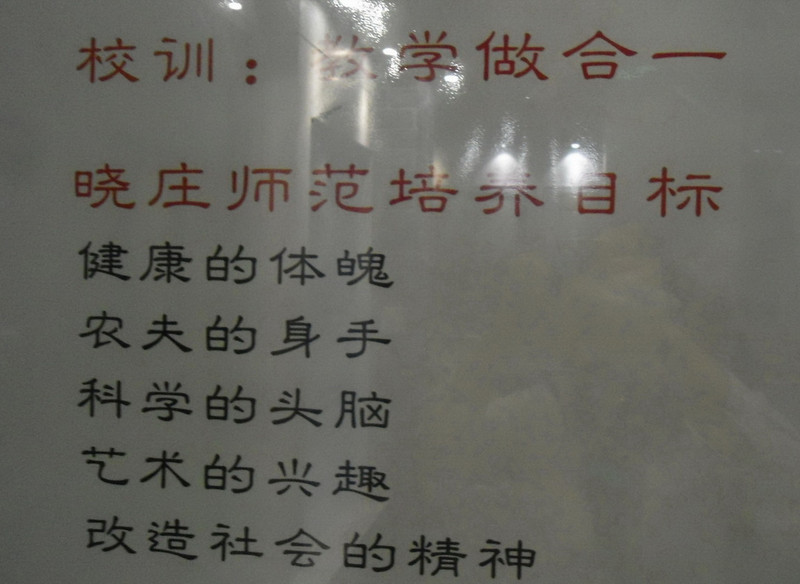 校训：教学做合一
晓庄师范培养目标
健康的体魄
农夫的身手
科学的头脑
艺术的兴趣
改造社会的精神